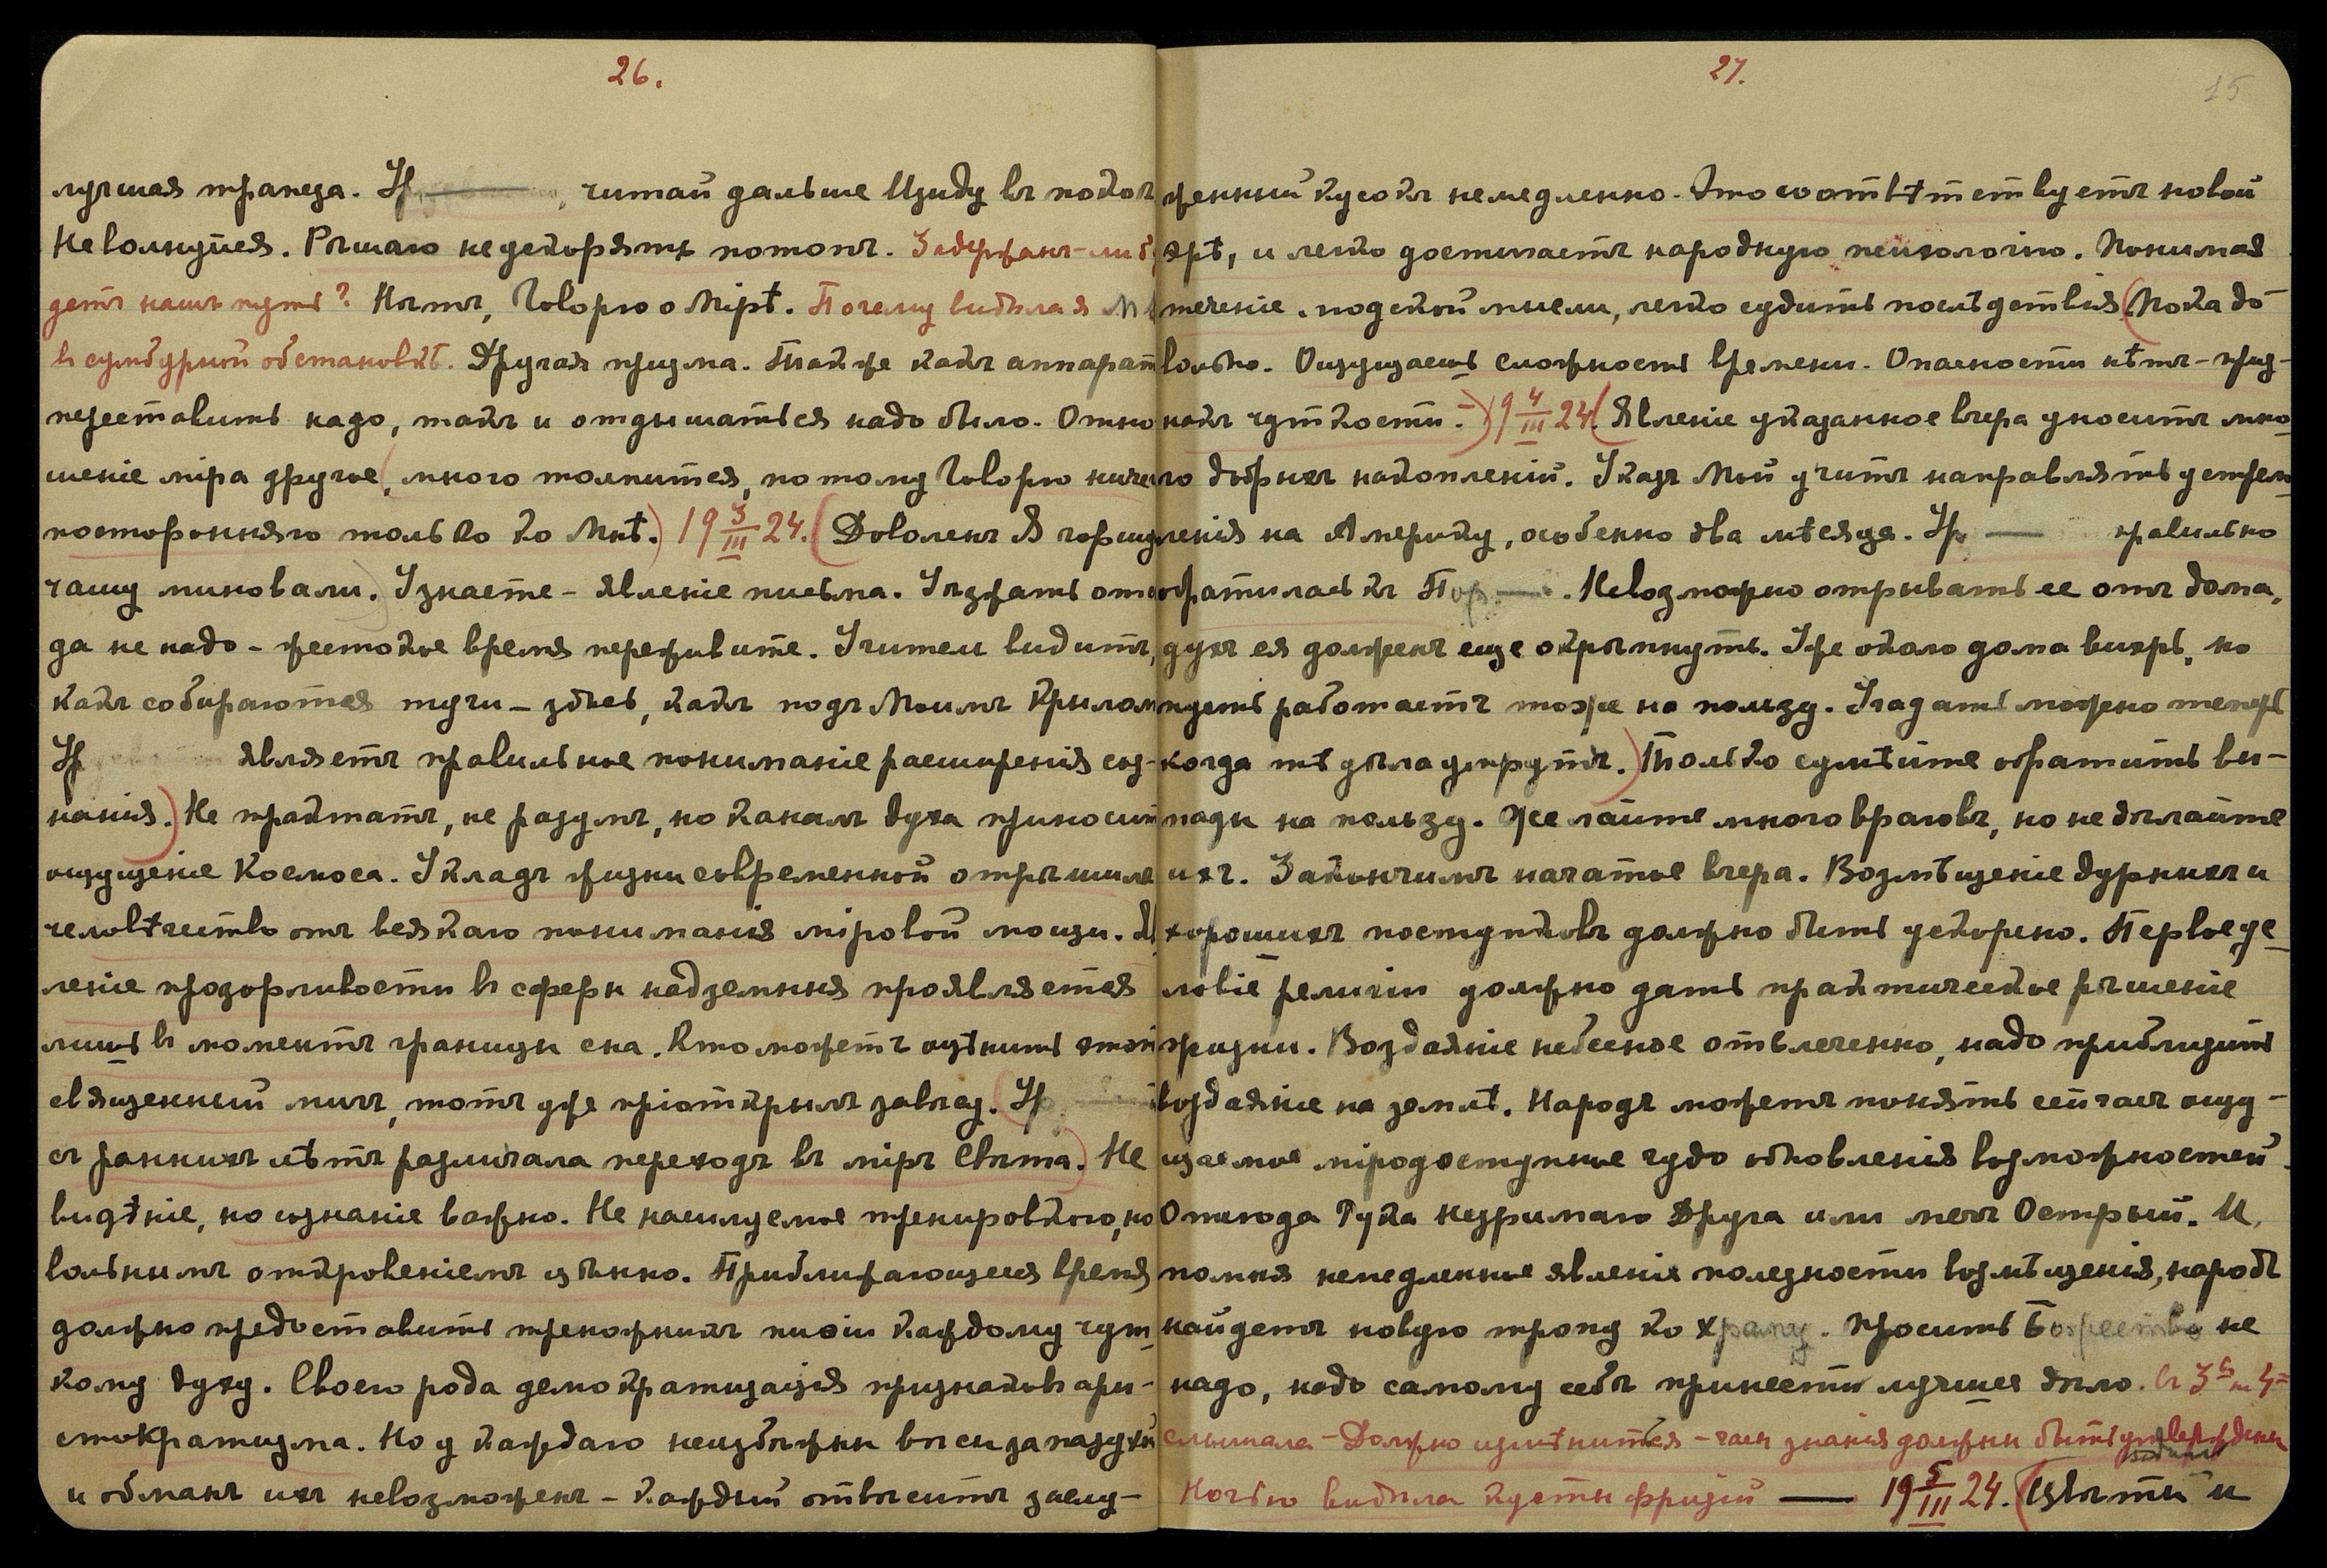 26.
лучшая трапеза. Ур , читай дальше Изиду въ покоѣ
Неволнуйся. Рѣшаю не ускорять потопъ. Задержанъ-ли бу
детъ нашъ путь? Нѣтъ, Говорю о Мірѣ. Почему видѣла я М
въ сумбурной обстановкѣ. Другая призма. Также какъ аппарат
переставить надо, такъ и отдышаться надо было. Отно
шеніе міра другое, много толпится, потому Говорю ничего
посторонняго только ко Мнѣ.) 19 3/III 24. (Доволенъ Я горшую
чашу миновали. Узнаете - явленіе письма. Уѣзжать отсю
да не надо - жестокое время переживите. Учитель видитъ,
какъ собираются тучи - здѣсь, какъ подъ Моимъ Крыломъ
Ур являетъ правильное пониманіе расширенія соз-
нанія.) Не трактатъ, не разумъ, но каналъ духа приносит
ощущеніе Космоса. Укладъ жизни современной отрѣшил
человѣчество отъ всякаго пониманія міровой мощи. Я
леніе прозорливости въ сферы надземныя проявляется
лишь въ моментъ границы сна. Кто можетъ оцѣнить этот
священный мигъ, тотъ уже пріоткрылъ завѣсу. (Ур
съ раннихъ лѣтъ различала переходъ въ міръ Свѣта.) Не
видѣніе, но сознаніе важно. Не насилуемое тренировкою, но
вольнымъ откровеніемъ цѣнно. Приближающееся время
должно предоставить треножникъ пиѳіи каждому чут-
кому духу. Своего рода демократизація признаковъ ари-
стократизма. Но у каждаго неизбѣжны вѣсы за пазухой
и обманъ ихъ невозможенъ - каждый отвѣситъ заслу-
27.
15
женный кусокъ немедленно. Это соотвѣтствуетъ новой
эрѣ, и легко достигаетъ народную психологію. Понимая
теченіе людской мысли, легко судить послѣдствія (Пока до-
вольно. Ощущаешь сложность времени. Опасности нѣтъ - приз-
накъ чуткости. -) 19 4/III 24. (Явленіе указанное вчера уноситъ мно-
го дурныхъ накопленій. Указъ Мой учитъ направлять устрем-
ленія на Америку, особенно два мѣсяца. Ур — правильно
обратилась къ Пор — . Невозможно отрывать ее отъ дома,
духъ ея долженъ еще окрѣпнуть. Уже около дома вихрь, но
пусть работаетъ тоже на пользу. Угадать можно теперь
когда тѣ дѣла умрутъ.) Только сумѣйте обратить вы-
пады на пользу. Желайте много враговъ, но не дѣлайте
ихъ. Закончимъ начатое вчера. Возмѣщеніе дурныхъ и
хорошихъ поступковъ должно быть ускорено. Первое ус-
ловіе религіи должно дать практическое рѣшеніе
жизни. Воздаяніе небесное отвлеченно, надо приблизить
воздаяніе на землѣ. Народъ можетъ понять сейчасъ ощу-
щаемое міродоступное чудо обновленія возможностей.
Отсюда Рука незримаго Друга или мечъ Острый. И,
помня немедленные явленія полезности возмѣщенія, народъ
найдетъ новую тропу ко храму. Просить Божество не
надо, надо самому себѣ принести лучшее дѣло. въ 3 4
слышала - Должно измѣниться - часы знанія должны быть утверждены
Ночью видѣла кусты фризій — 19 5/III 24. (Цвѣты и